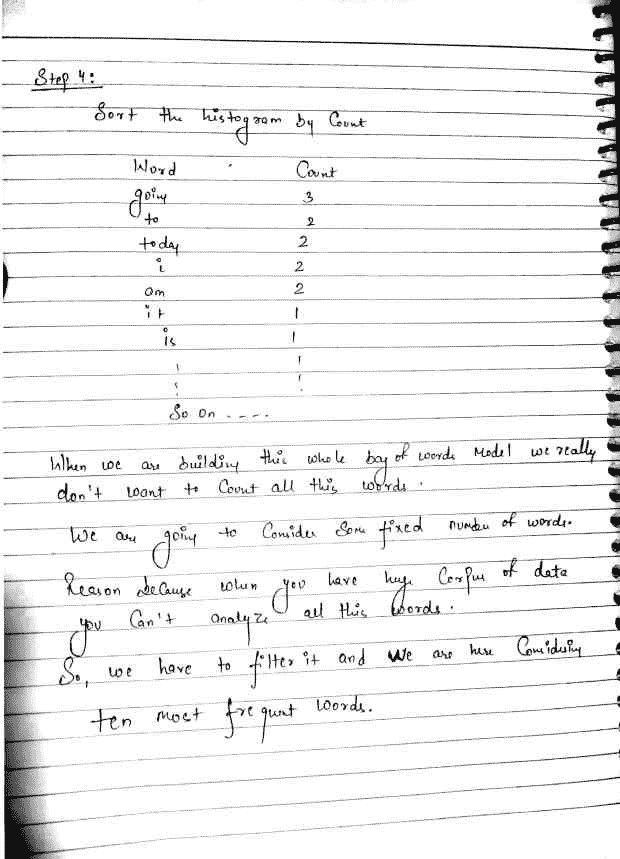 Step 4:
Sort the histogram by Count
Word Count
going 3
to 2
today 2
i 2
am 2
it 1
is 1
So on ----
When we are building this whole bag of words Model we really
don't want to Count all this words.
We are going to Consider Some fixed number of words.
Reason because when you have huge Corpus of data
you Can't analyze all this words.
So, we have to filter it and we are here Considering
ten most frequent words.